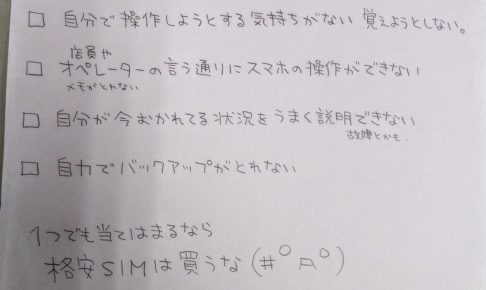 □ 自分で操作しようとする気持ちがない 覚えようとしない。
店員や
□ オペレーターの言う通りにスマホの操作ができない
メモがとれない
□ 自分が今おかれてる状況をうまく説明できない
故障とかも.
□ 自力でバックアップがとれない
1つでも当てはまるなら
格安SIMは買うな (#゜Д゜)